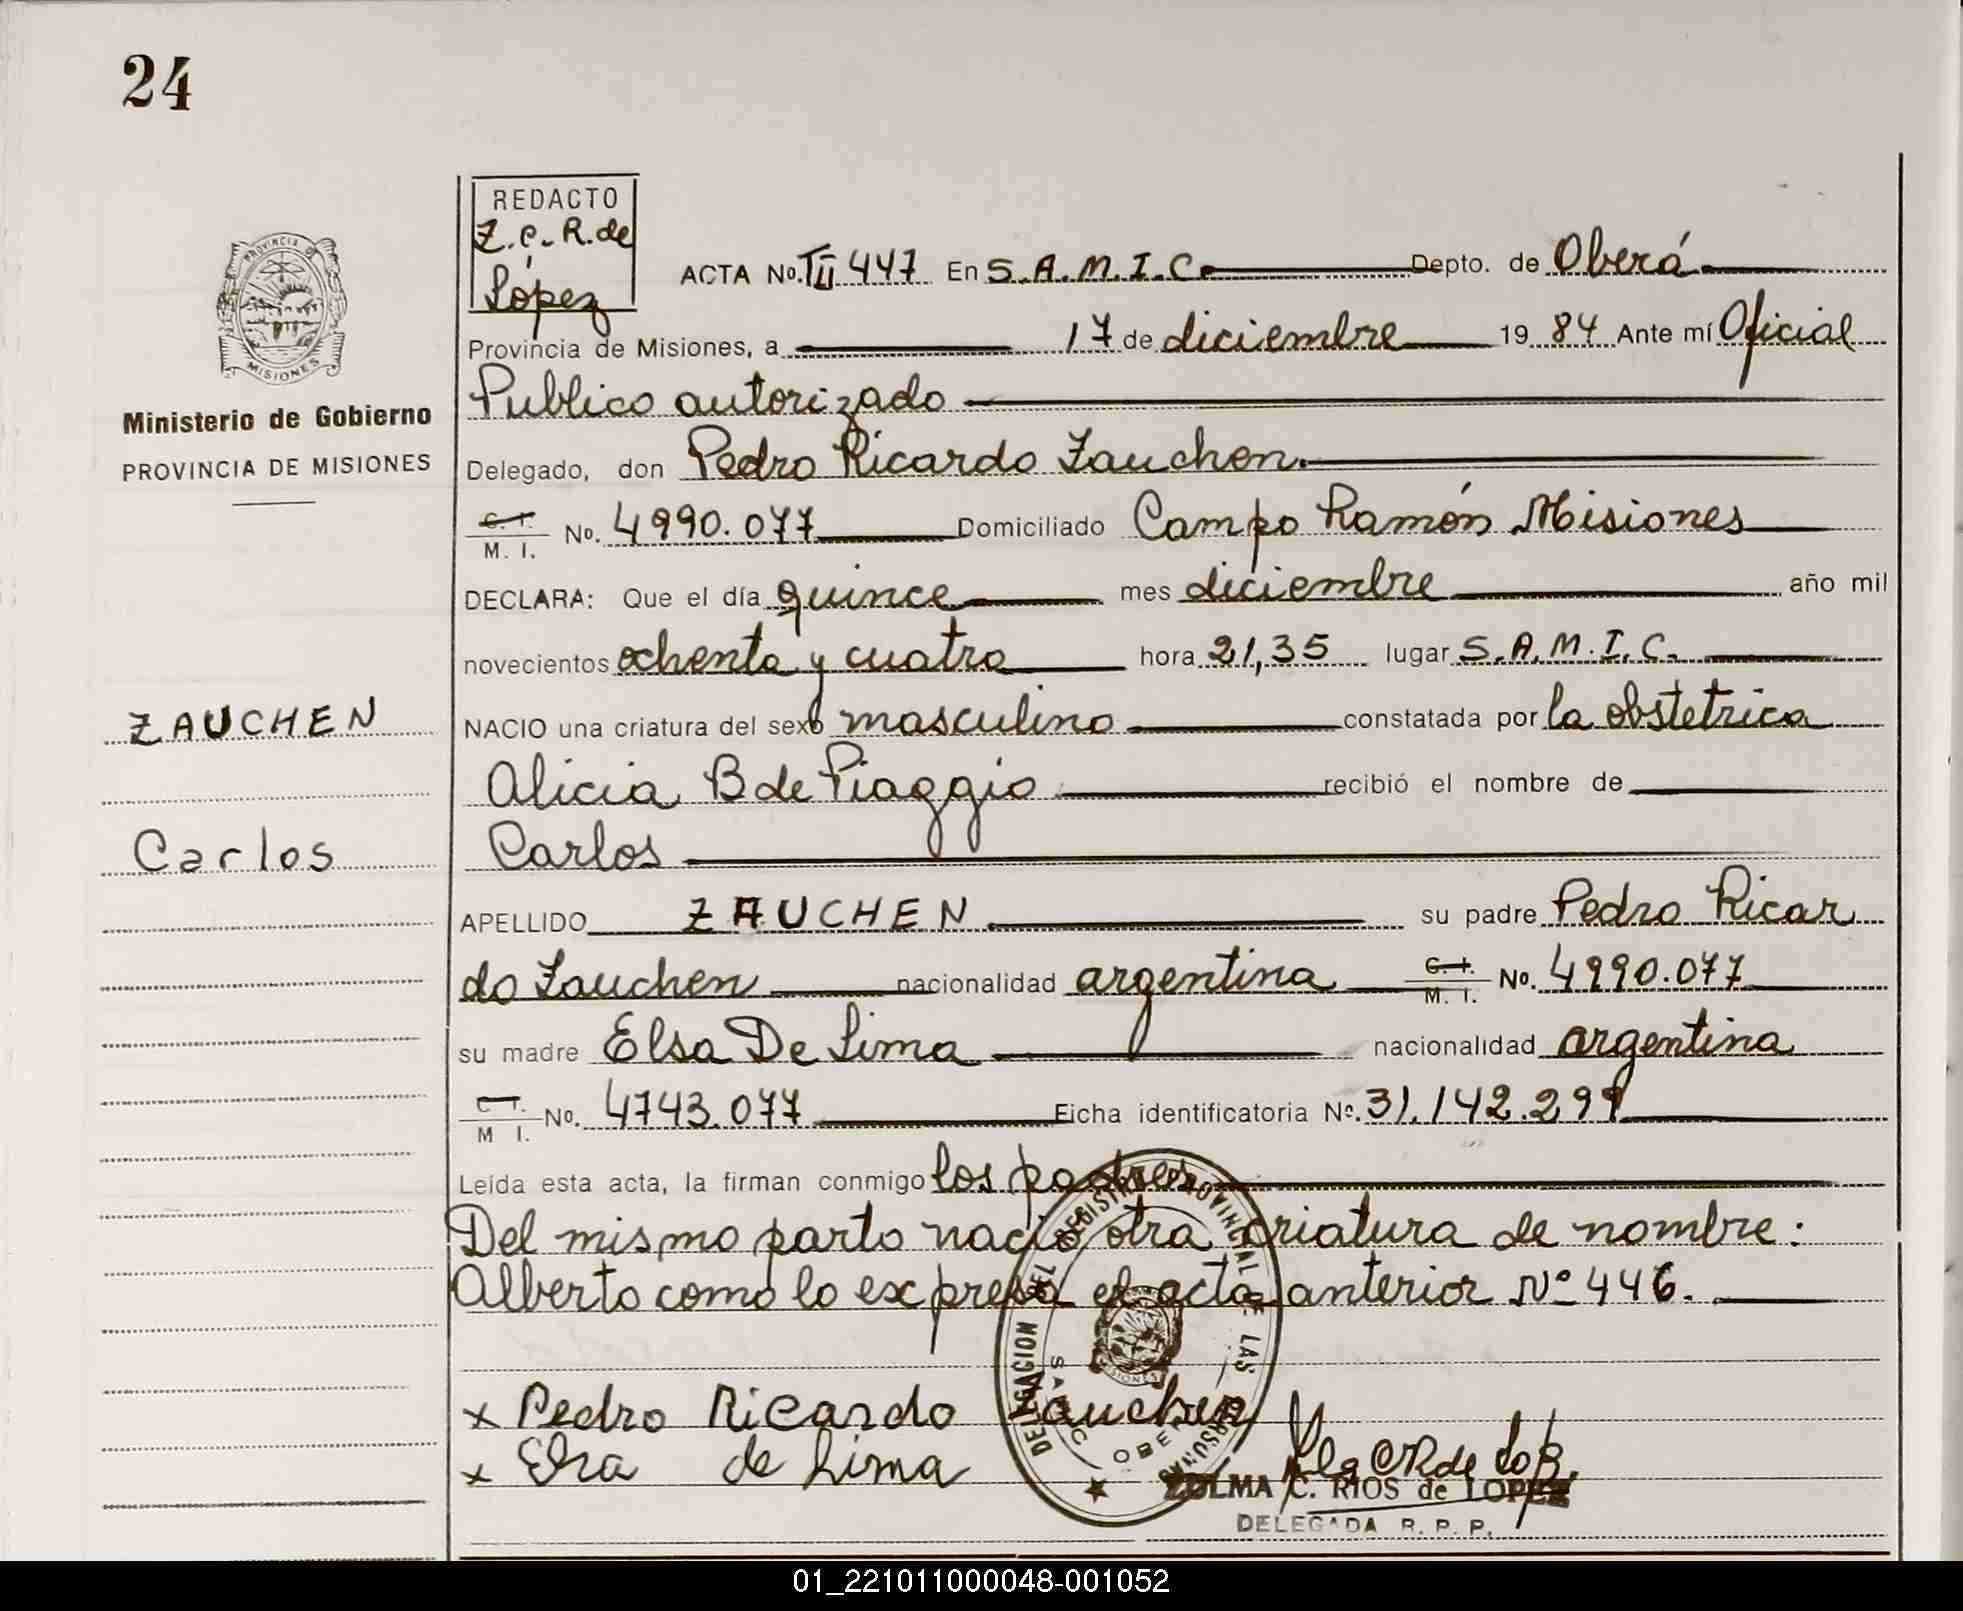 24
REDACTO
Z.C. R. de
López
PROVINCIA DE
MISIONES
Ministerio de Gobierno
PROVINCIA DE MISIONES
ZAUCHEN
Carlos
ACTA No. TII 447 En S.A.M.I.C. Depto. de Oberá
Provincia de Misiones, a 17 de diciembre 1984 Ante mí Oficial
Publico autorizado
Delegado, don Pedro Ricardo Zauchen.
C. I. / M. I. No. 4990.077 Domiciliado Campo Ramón Misiones
DECLARA: Que el día quince mes diciembre año mil
novecientos ochenta y cuatro hora 21,35 lugar S.A.M.I.C.
NACIO una criatura del sexo masculino constatada por la obstetrica
Alicia B de Piaggio recibió el nombre de
Carlos
APELLIDO ZAUCHEN su padre Pedro Ricar
do Zauchen nacionalidad argentina C. I. / M. I. No. 4990.077
su madre Elsa De Lima nacionalidad argentina
C. I. / M. I. No. 4743.077 Ficha identificatoria Nº. 31.142.299
Leída esta acta, la firman conmigo los padres
Del mismo parto nació otra criatura de nombre:
Alberto como lo expresa el acta anterior Nº 446.
x Pedro Ricardo Zauchen
x Elsa de Lima
DELEGACION DEL REGISTRO PROVINCIAL DE LAS PERSONAS
SAMIC OBERA
ZULMA C. RIOS de LOPEZ
DELEGADA R. P. P.
01_221011000048-001052